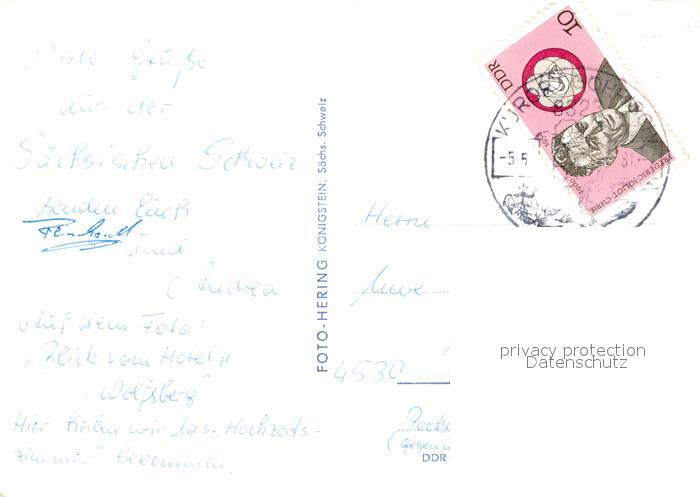 Viele Grüße
aus der
Sächsischen Schweiz
senden Euch
Reinhardt
und
Andrea
Auf dem Foto:
"Blick vom Hotel"
"Wolfsberg"
Hier haben wir das "Hochzeits-
zimmer" bekommen.
FOTO-HERING KÖNIGSTEIN, Sächs. Schweiz
10
DDR
FREDERIC JOLIOT-CURIE
8322
-5.5
81.-
Herrn
Uwe
4530
DDR
privacy protection
Datenschutz